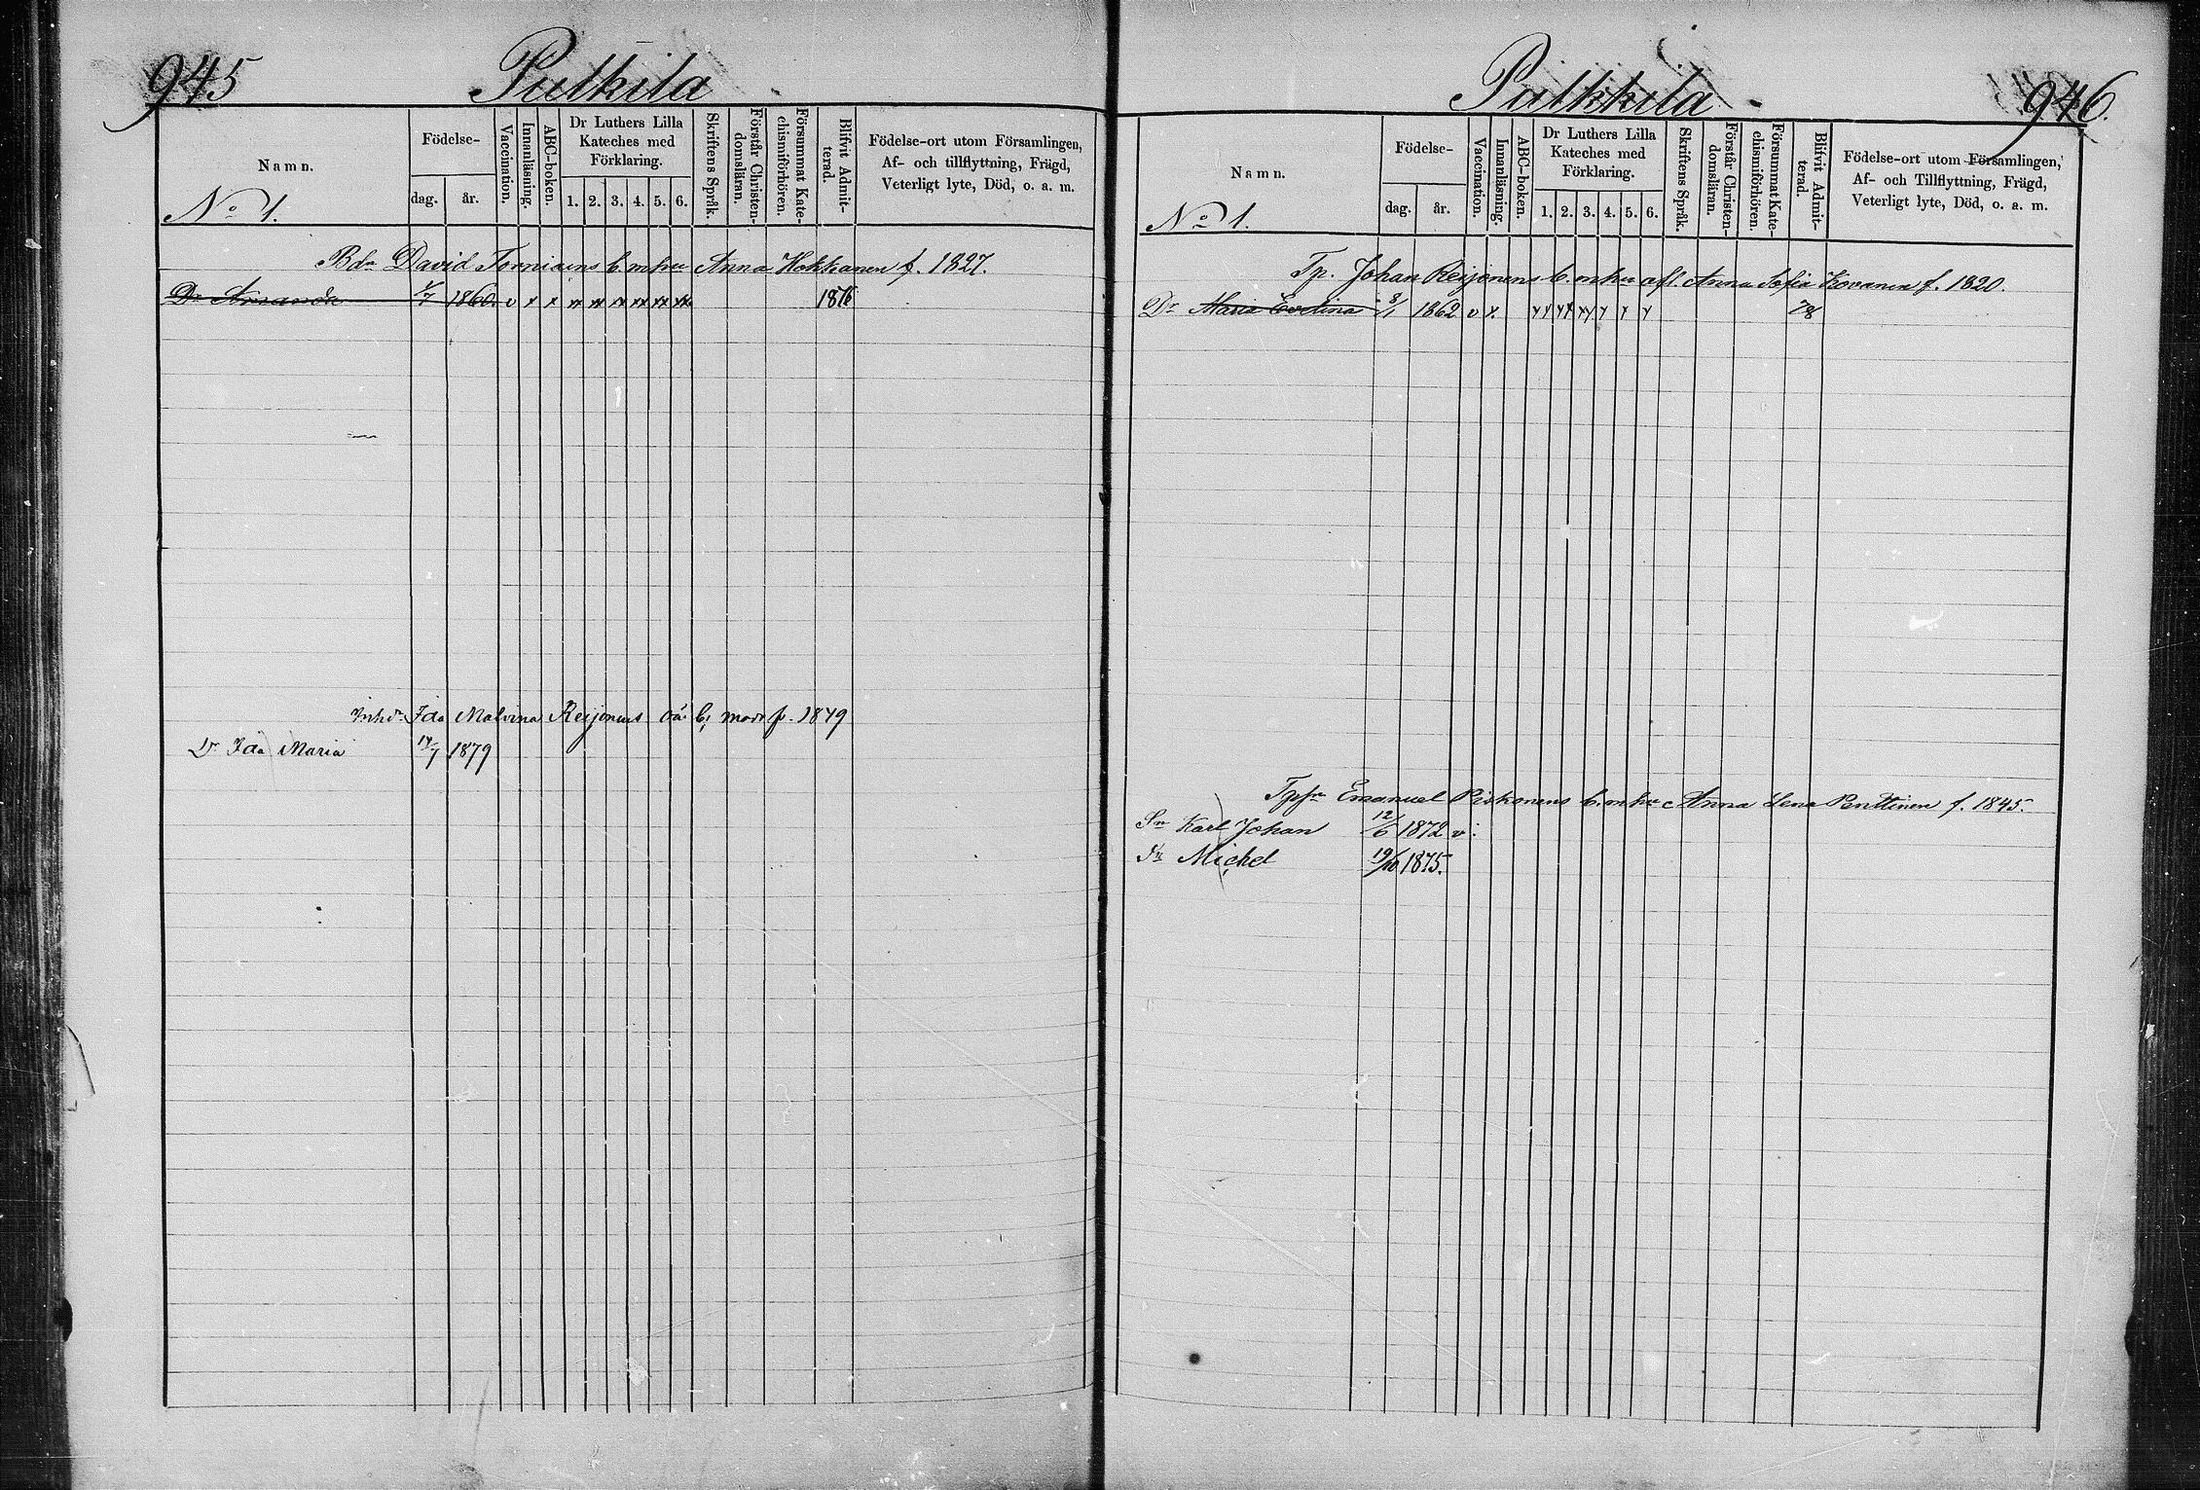 945
Pulkila
Namn.
No 1.
Födelse-
dag. år.
Vaccination.
Innanläsning.
ABC-boken.
Dr Luthers Lilla
Kateches med
Förklaring.
1. 2. 3. 4. 5. 6.
Skriftens Språk.
Förstår Christen-
domsläran.
Försummat Kate-
chismiförhören.
Blifvit Admit-
terad.
Födelse-ort utom Församlingen,
Af- och tillflyttning, Frägd,
Veterligt lyte, Död, o. a. m.
Bdn David Torniains b. m hu Anna Hokkanen f. 1827.
Dr Amanda 1860 v x x xx xx xx xx xx xx 1876
Inhdr Ida Malvina Reijonens oä. b; mor f. 1849
Dr Ida Maria 14/7 1879
946.
Pulkkila
Namn.
No 1.
Födelse-
dag. år.
Vaccination.
Innanläsning.
ABC-boken.
Dr Luthers Lilla
Kateches med
Förklaring.
1. 2. 3. 4. 5. 6.
Skriftens Språk.
Förstår Christen-
domsläran.
Försummat Kate-
chismiförhören.
Blifvit Admit-
terad.
Födelse-ort utom Församlingen,
Af- och Tillflyttning, Frägd,
Veterligt lyte, Död, o. a. m.
Tp. Johan Reijonens b. m hu afl. Anna Sofia Kovanen f. 1820.
Dr Maria Evelina 8/1 1862 v x. 78
Tpsn Emanuel Piskonens b. m hu Anna Lena Penttinen f. 1845.
Sn Karl Johan 12/6 1872 v.
Sn Michel 19/10 1875.